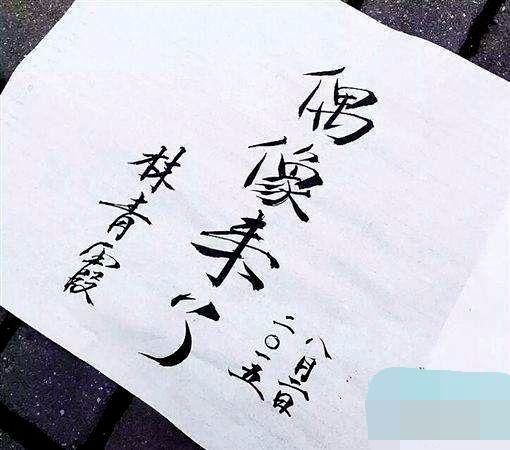 偶像来了
林青霞
二〇一五
八月日